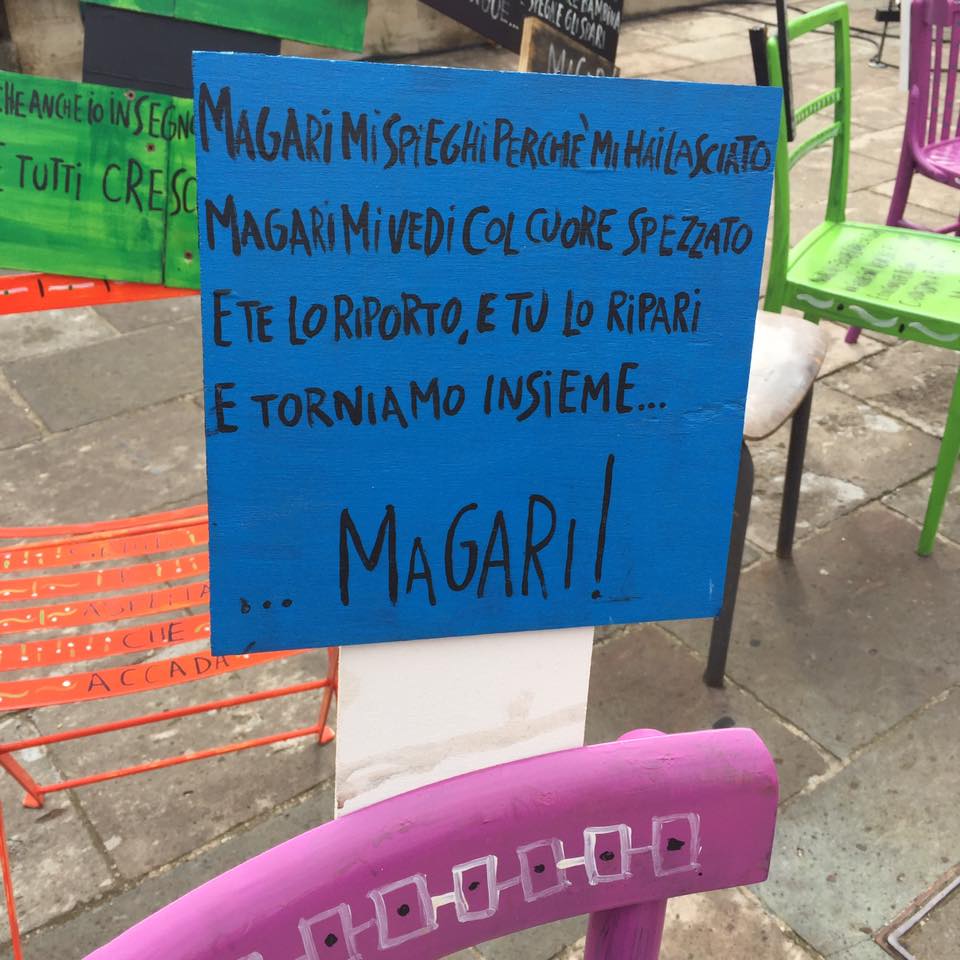 SPEGNE GLI SPARI
MAGARI
CHE ANCHE IO INSEGNO
E TUTTI CRESC
MAGARi Mi SPiEGHi PERCHÈ Mi HAi LASCIATO
MAGARi Mi VEDi COL CUORE SPEZZATO
E TE LO RiPORTO, E TU LO RiPARi
E TORNiAMO INSiEME...
... MAGARi!
ASPETTA
CHE
ACCADA